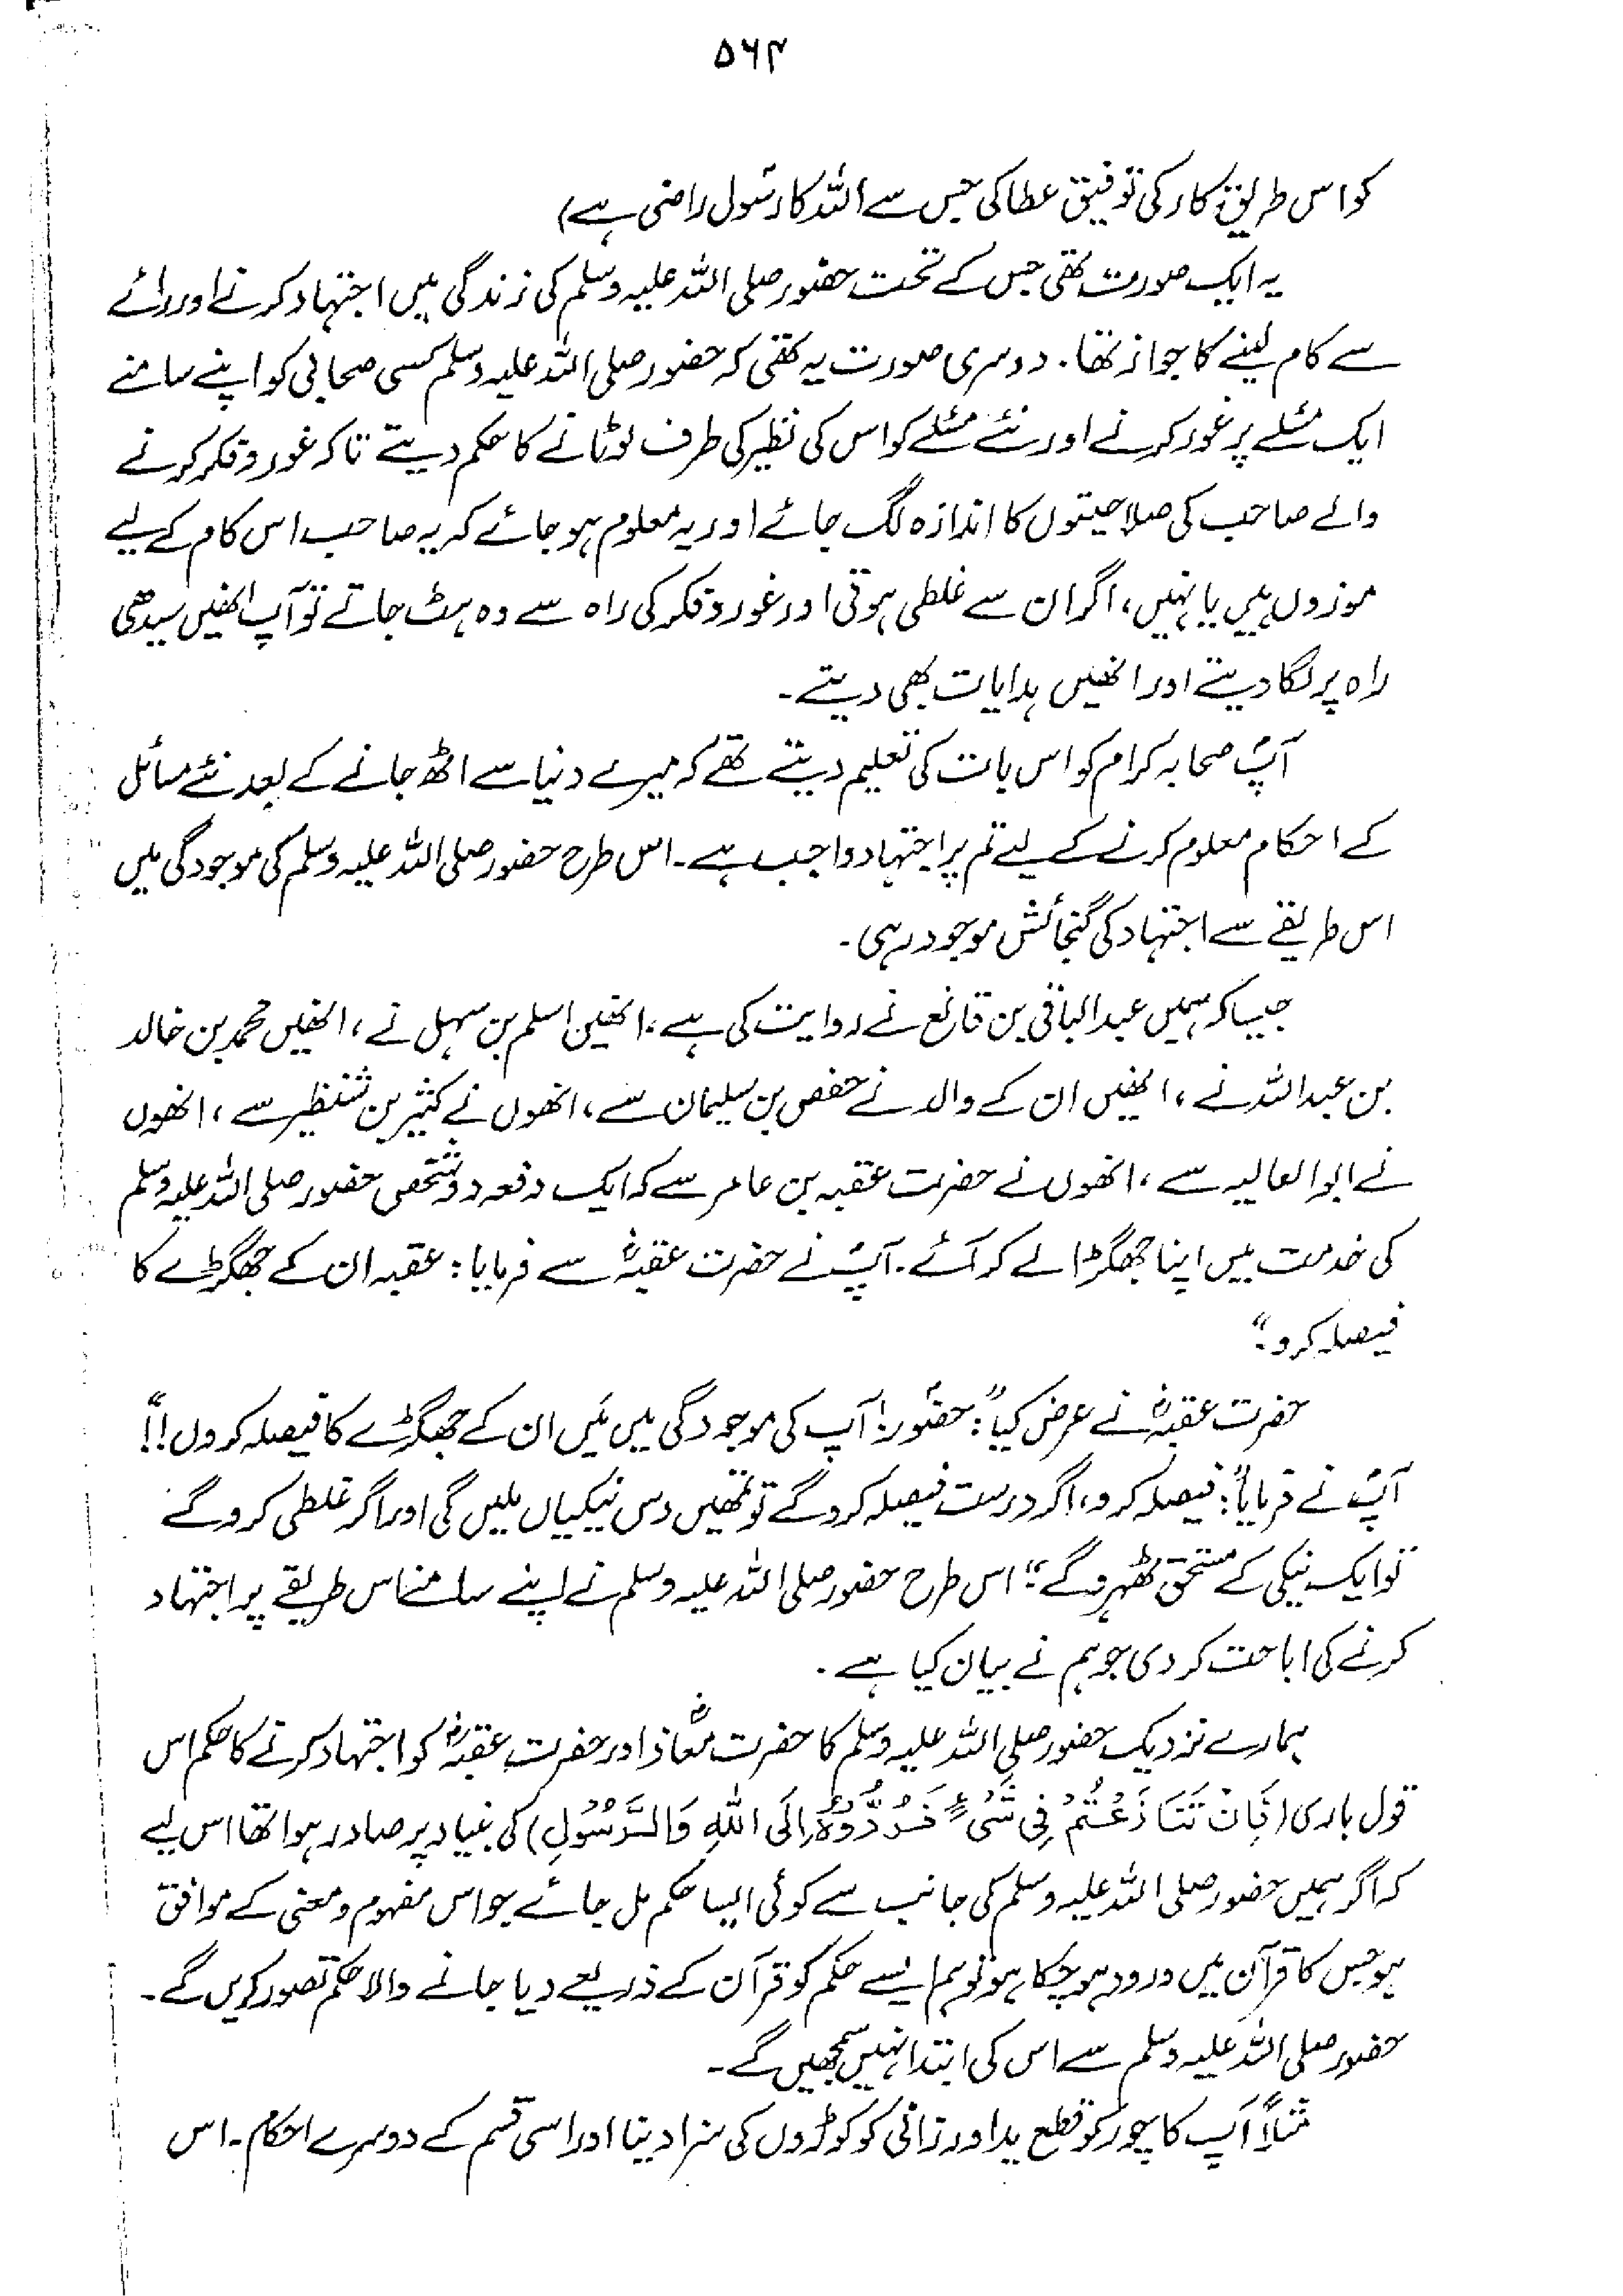 ۵۶۴
کو اس طریقۂ کار کی توفیق عطا کی جس سے اللہ کا رسول راضی ہے)
یہ ایک صورت تھی جس کے تحت حضور صلی اللہ علیہ وسلم کی زندگی میں اجتہاد کرنے اور رائے
سے کام لینے کا جواز تھا۔ دوسری صورت یہ تھی کہ حضور صلی اللہ علیہ وسلم کسی صحابی کو اپنے سامنے
ایک مسئلے پر غور کرنے اور نئے مسئلے کو اس کی نظیر کی طرف لوٹانے کا حکم دیتے تاکہ غور و فکر کرنے
والے صاحب کی صلاحیتوں کا اندازہ لگ جائے اور یہ معلوم ہو جائے کہ یہ صاحب اس کام کے لیے
موزوں ہیں یا نہیں، اگر ان سے غلطی ہوتی اور غور و فکر کی راہ سے وہ ہٹ جاتے تو آپ انھیں سیدھی
راہ پر لگا دیتے اور انھیں ہدایات بھی دیتے۔
آپؐ صحابہ کرام کو اس بات کی تعلیم دیتے تھے کہ میرے دنیا سے اٹھ جانے کے بعد نئے مسائل
کے احکام معلوم کرنے کے لیے تم پر اجتہاد واجب ہے۔ اس طرح حضور صلی اللہ علیہ وسلم کی موجودگی میں
اس طریقے سے اجتہاد کی گنجائش موجود رہی۔
جیسا کہ ہمیں عبدالباقی بن قانع نے روایت کی ہے، انھیں اسلم بن سہل نے، انھیں محمد بن خالد
بن عبداللہ نے، انھیں ان کے والد نے حفص بن سلیمان سے، انھوں نے کثیر بن شنظیر سے، انھوں
نے ابوالعالیہ سے، انھوں نے حضرت عقبہ بن عامر سے کہ ایک دفعہ دو شخص حضور صلی اللہ علیہ وسلم
کی خدمت میں اپنا جھگڑا لے کر آئے۔ آپؐ نے حضرت عقبہؓ سے فرمایا: عقبہ ان کے جھگڑے کا
فیصلہ کرو۔"
حضرت عقبہؓ نے عرض کیا": حضورؐ! آپ کی موجودگی میں مَیں ان کے جھگڑے کا فیصلہ کروں!!"
آپؐ نے فرمایا": فیصلہ کرو، اگر درست فیصلہ کرو گے تو تمھیں دس نیکیاں ملیں گی اور اگر غلطی کرو گے
تو ایک نیکی کے مستحق ٹھہرو گے"؛ اس طرح حضور صلی اللہ علیہ وسلم نے اپنے سامنے اس طریقے پر اجتہاد
کرنے کی اباحت کر دی جو ہم نے بیان کیا ہے۔
ہمارے نزدیک حضور صلی اللہ علیہ وسلم کا حضرت معاذؓ اور حضرت عقبہؓ کو اجتہاد کرنے کا حکم اس
قول باری (فَاِنْ تَنَازَعْتُمْ فِیْ شَیْءٍ فَرُدُّوْہُ اِلَی اللّٰہِ وَالرَّسُوْلِ) کی بنیاد پر صادر ہوا تھا اس لیے
کہ اگر ہمیں حضور صلی اللہ علیہ وسلم کی جانب سے کوئی ایسا حکم مل جائے جو اس مفہوم و معنی کے موافق
ہو جس کا قرآن میں ورود ہو چکا ہو تو ہم ایسے حکم کو قرآن کے ذریعے دیا جانے والا حکم تصور کریں گے۔
حضور صلی اللہ علیہ وسلم سے اس کی ابتدا نہیں سمجھیں گے۔
مثلاً آپ کا چور کو قطع ید اور زانی کو کوڑوں کی سزا دینا اور اسی قسم کے دوسرے احکام۔ اس